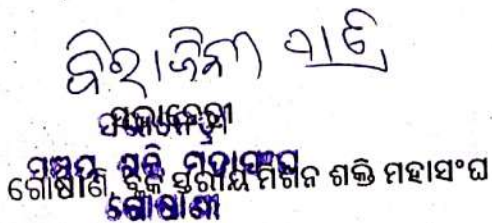 ବିରାଜିନୀ ପାତ୍ର
ସଭାନେତ୍ରୀ
ଗୋଷାଣି, ବ୍ଲକ ସ୍ତରୀୟ ମିଶନ ଶକ୍ତି ମହାସଂଘ
ଗୋଷାଣୀ